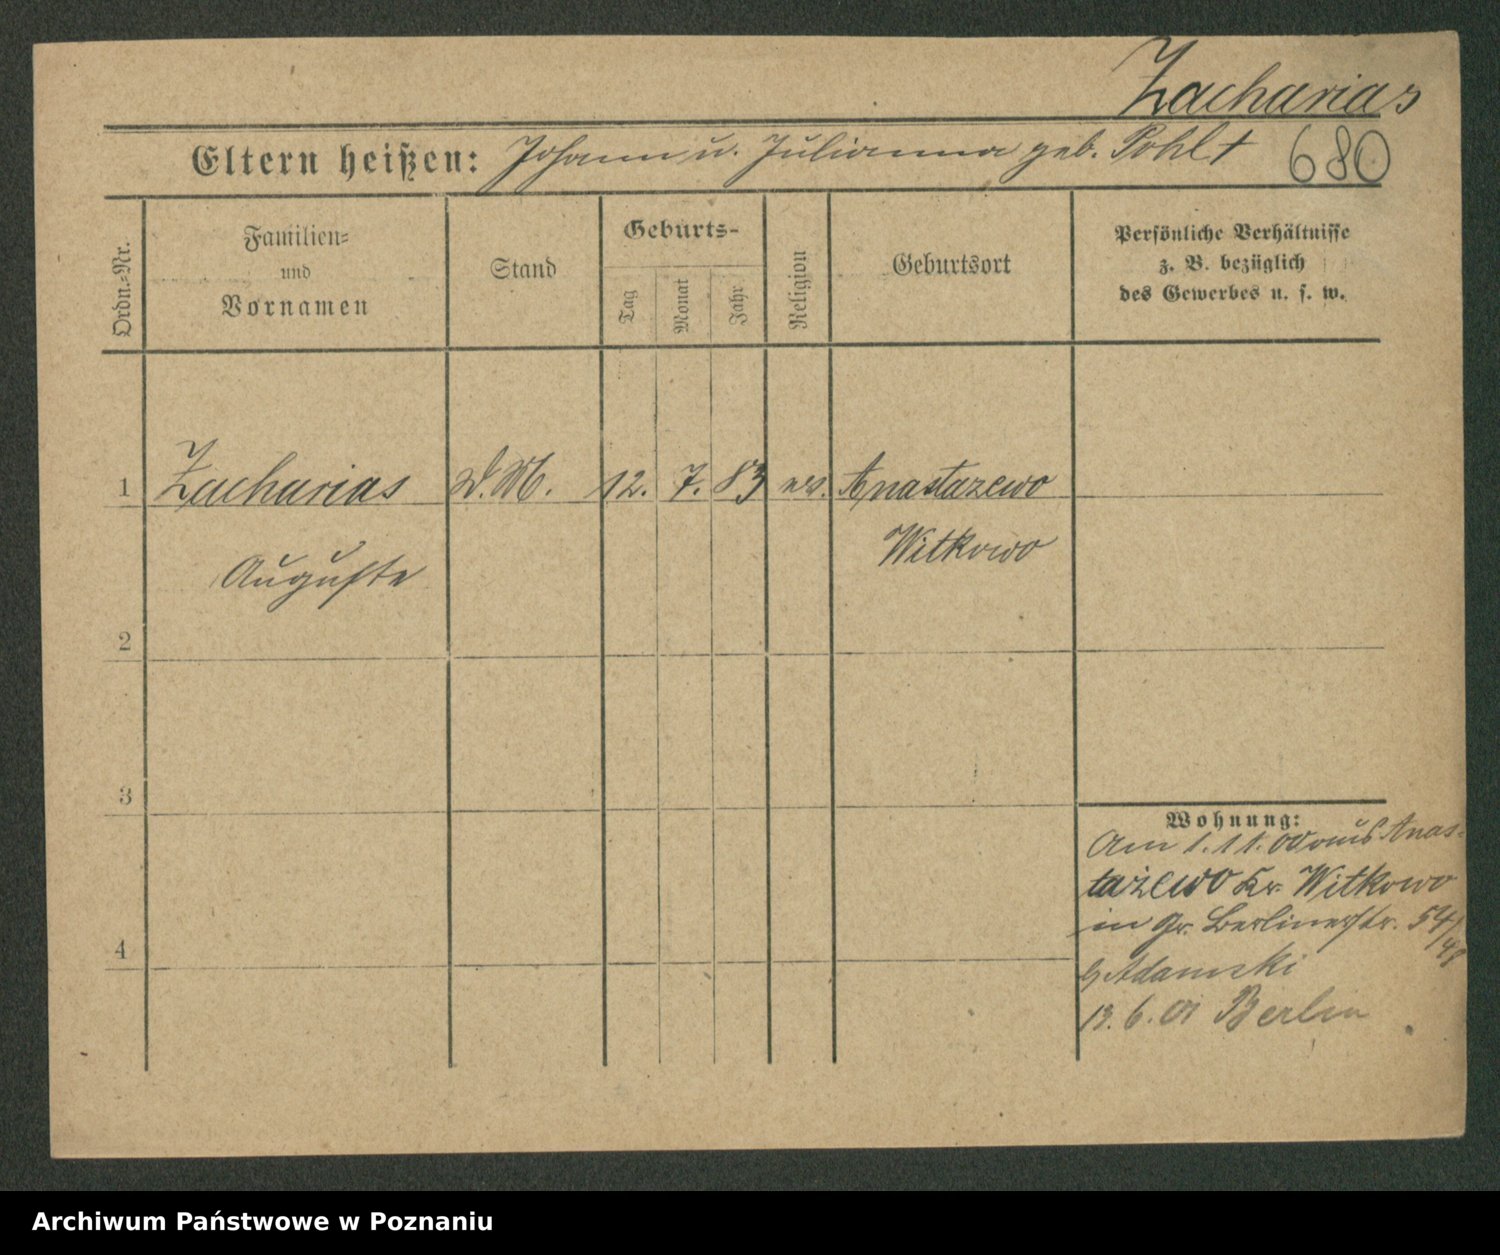 Zacharias
Eltern heißen: Johann u. Julianna geb. Pohl †
680
Ordn.-Nr.
Familien-
und
Vornamen
Stand
Geburts-
Tag
Monat
Jahr
Religion
Geburtsort
Persönliche Verhältnisse
z. B. bezüglich
des Gewerbes u. s. w.
1 Zacharias D.M. 12. 7. 83 ev. Anastazewo
Auguste Witkowo
2
3
4
Wohnung:
Am 1.11.00 aus Anas-
tażewo Kr. Witkowo
in Gr. Berlinerstr. 54/
Adamski
13.6.01 Berlin
Archiwum Państwowe w Poznaniu